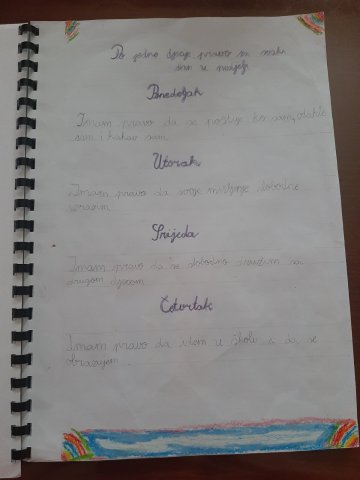 Po jedno dječje pravo za svaki
dan u nedjelji
Ponedeljak
Imam pravo da se poštuje ko sam, odakle
sam i kakav sam.
Utorak
Imam pravo da svoje mišljenje slobodno
izrazim
Srijeda
Imam pravo da se slobodno družim sa
drugom djecom
Četvrtak
Imam pravo da idem u školu i da se
obrazujem